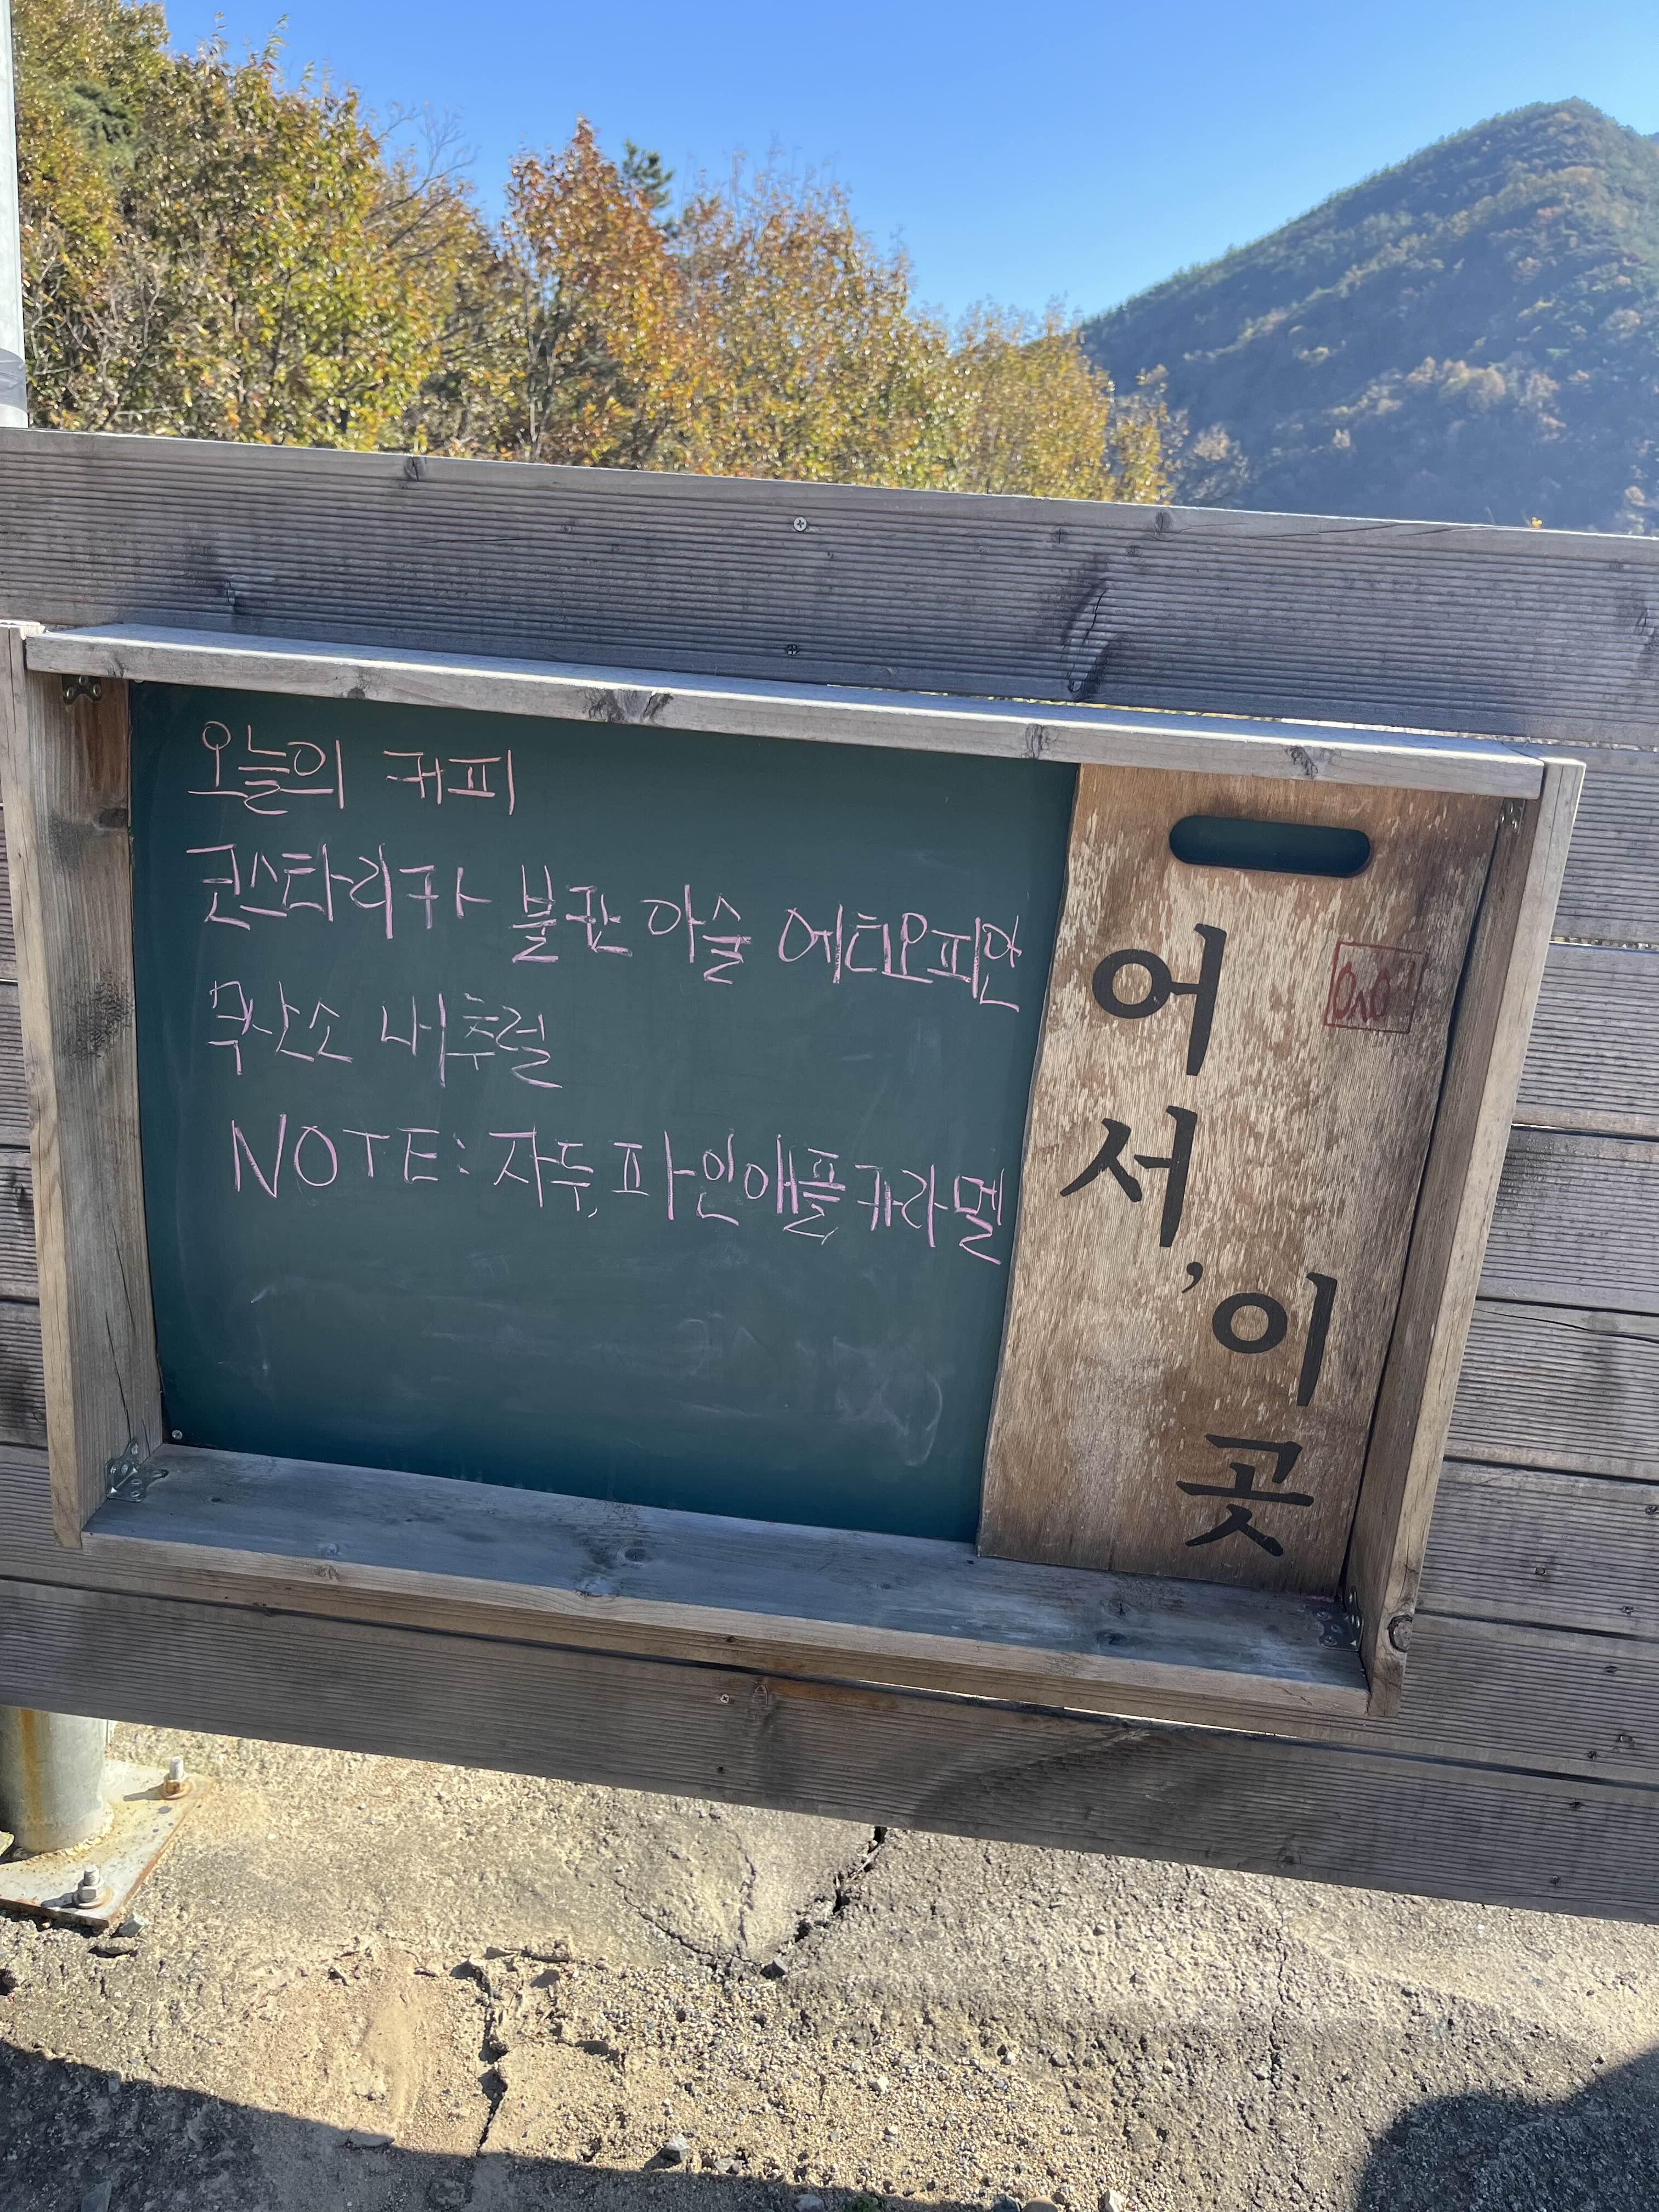 오늘의 커피
코스타리카 볼칸 아술 에티오피안
무산소 내추럴
NOTE: 자두, 파인애플, 카라멜
어서,
이곳